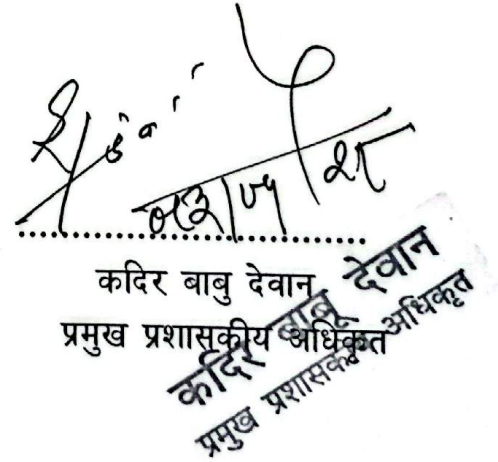 कदिर बाबु देवान
प्रमुख प्रशासकीय अधिकृत
कदिर बाबू देवान
प्रमुख प्रशासकीय अधिकृत